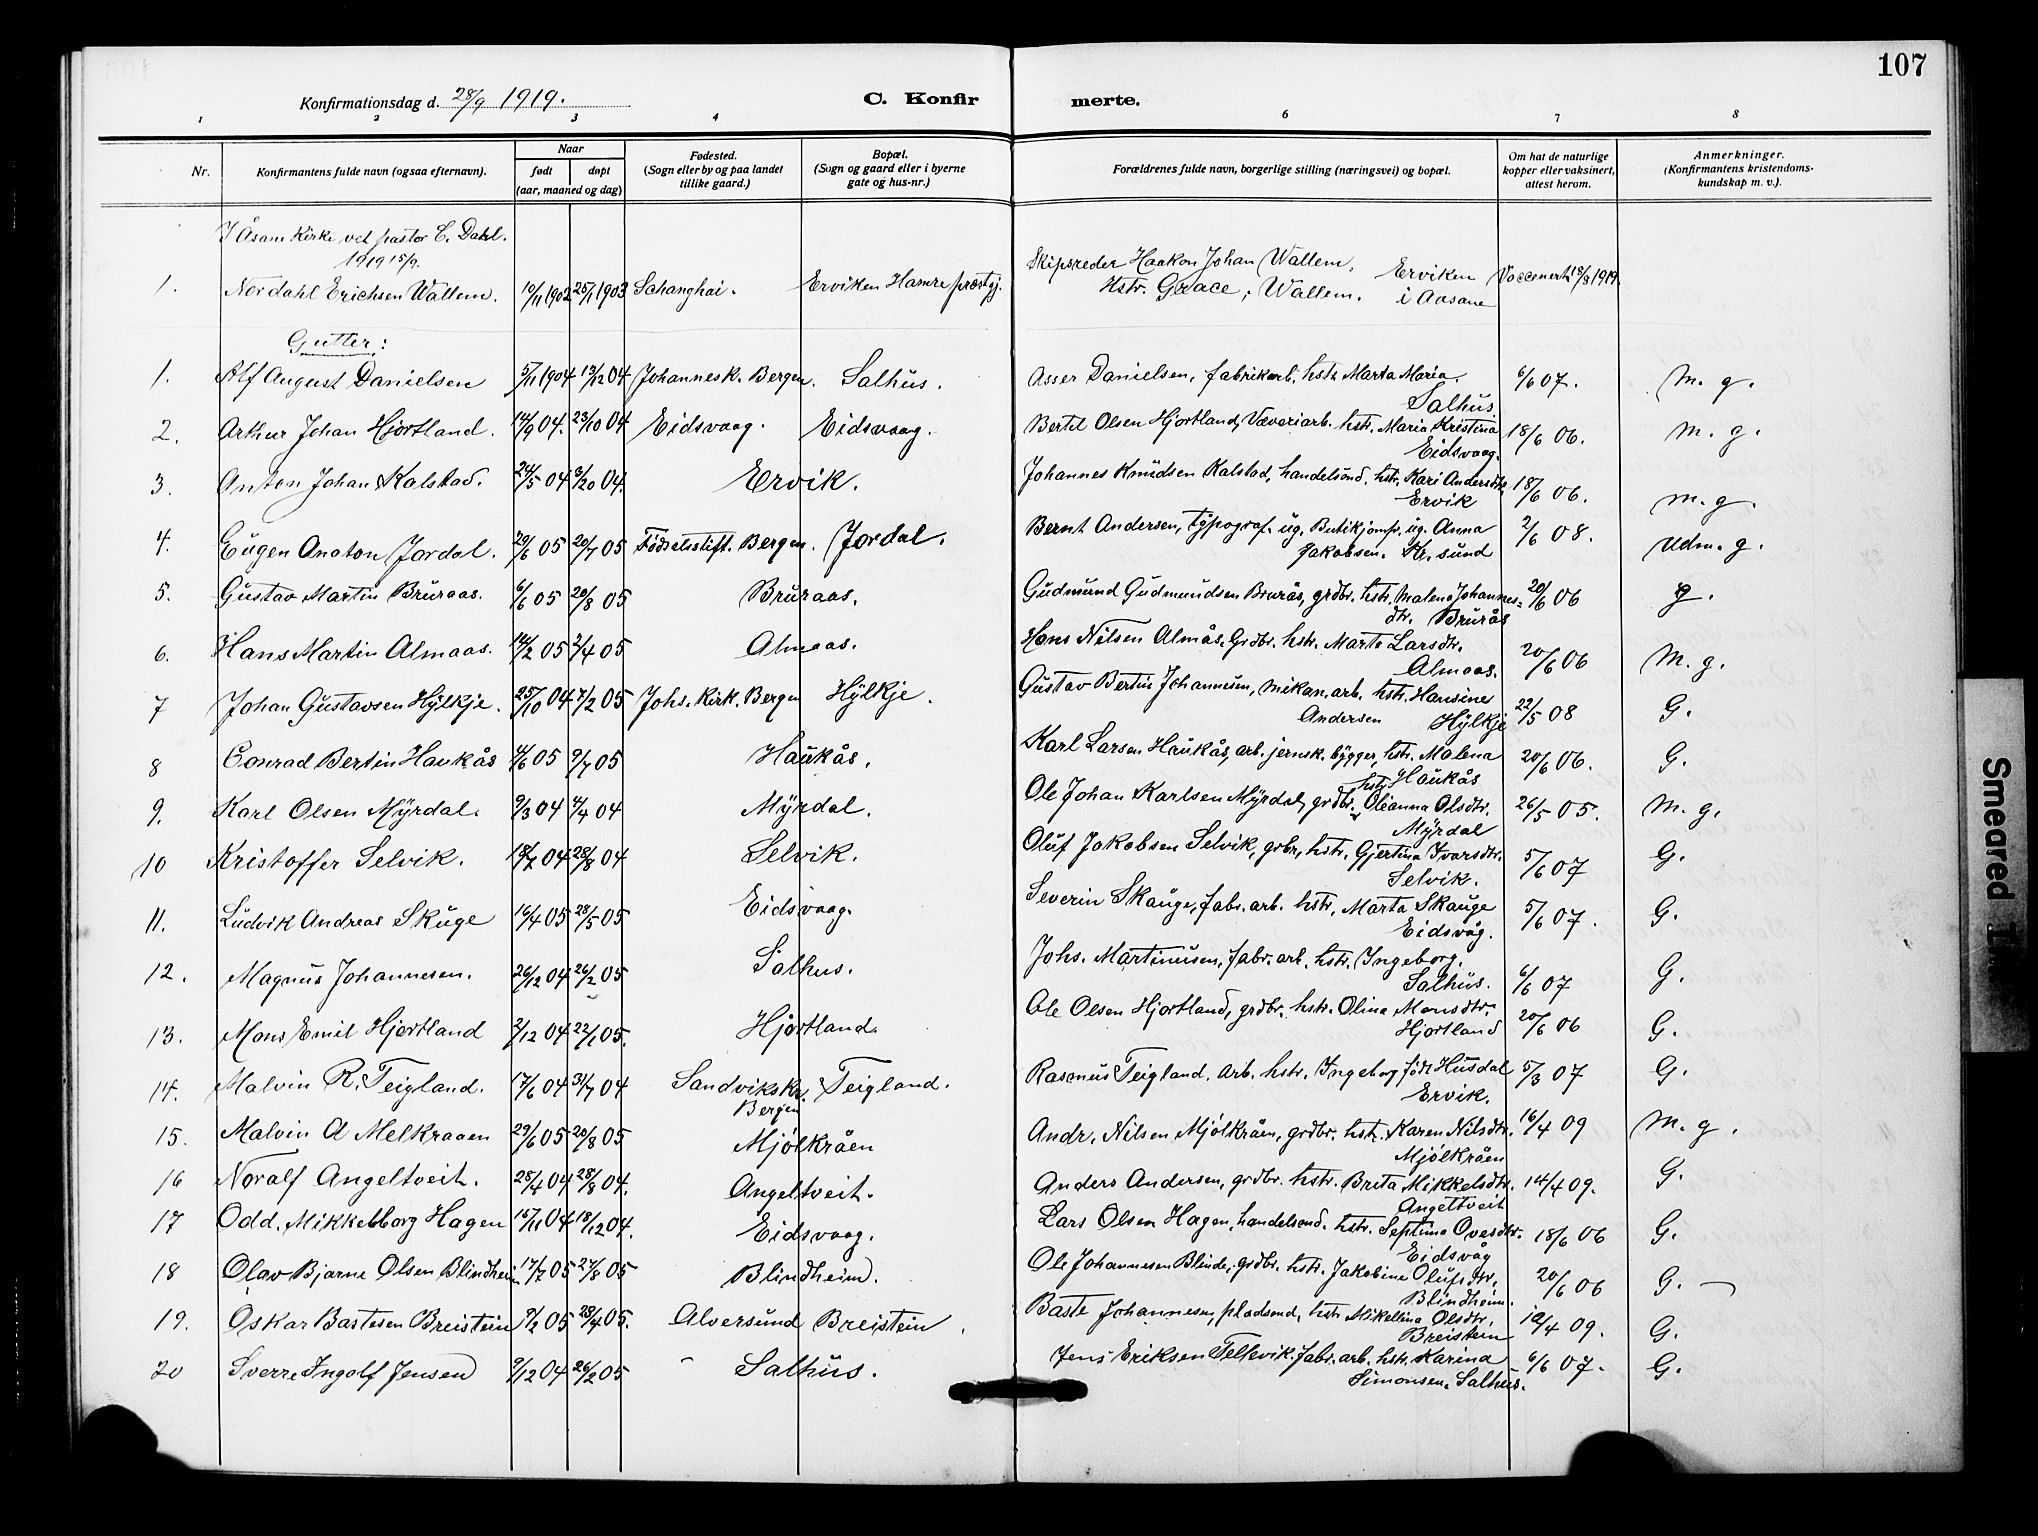 107
Konfirmationsdag d. 28/9 1919.
C. Konfirmerte.
1 2 3 4 6 7 8
Nr.
Konfirmantens fulde navn (ogsaa efternavn).
Naar
født døpt
(aar, maaned og dag)
Fødested.
(Sogn eller by og paa landet
tillike gaard.)
Bopæl.
(Sogn og gaard eller i byerne
gate og hus-nr.)
Forældrenes fulde navn, borgerlige stilling (næringsvei) og bopæl.
Om hat de naturlige
kopper eller vaksinert,
attest herom.
Anmerkninger.
(Konfirmantens kristendoms-
kundskap m. v.).
I Åsane Kirke ved pastor C. Dahl.
1919 15/9.
1. Nordahl Erichsen Wallem. 10/11 1902 25/1 1903 Schanghai. Erviken Hamre præstgj. Skipsreder Haakon Johan Wallem. Erviken
Hstr. Grace, Wallem. i Aasane
18/8 1919.
Gutter:
1. Alf August Danielsen 5/11 1904 13/12 04 Johannesk. Bergen. Salhus. Asser Danielsen, fabrikarb. hstr. Marta Maria. 6/6 07. M. g.
Salhus.
2. Arthur Johan Hjortland. 14/9 04. 23/10 04 Eidsvaag. Eidsvaag. Bertel Olsen Hjortland, Væveriarb. hstr. Maria Kristina 18/6 06. M. g.
Eidsvaag.
3. Anton Johan Kalstad. 24/5 04 04. Ervik. Johannes Knudsen Kalstad, handelsmd. hstr. Kari Andersdtr. 18/6 06. M. g.
Ervik
4. Eugen Anaton Jordal. 20/6 05 20/7 05 Fødselsstift. Bergen. Jordal. Bernt Andersen, typograf. ug. Butikjomfr. ug. Anna 2/6 08. Udm. g.
Jakobsen. Kr. sund
5. Gustav Martin Bruraas. 6/6 05 20/8 05 Bruraas. Gudmund Gudmundsen Brurås, grdbr. hstr. Malena Johannes= 20/6 06 g.
dtr. Brurås
6. Hans Martin Almaas. 14/2 05 2/4 05 Almaas. Hans Nilsen Almås, Grdbr. hstr. Marta Larsdtr. 20/6 06 M. g.
Almaas.
7 Johan Gustavsen Hylkje. 25/10 04 7/2 05 Johs. Kirk. Bergen Hylkje. Gustav Bertin Johannesen, mekan. arb. hstr. Hansine 22/5 08 G.
Andersen Hylkje
8 Conrad Bertin Haukås 4/6 05 9/7 05 Haukås. Karl Larsen Haukås, arb. jernsk. bygger, hstr. Malena 20/6 06. G.
Haukås
9. Karl Olsen Myrdal. 9/3 04 4/4 04 Myrdal. Ole Johan Karlsen Myrdal, grdbr. hstr. Oleanna Olsdtr. 26/5 05. M. g.
Myrdal
10 Kristoffer Selvik. 18/7 04 28/8 04 Selvik. Oluf Jakobsen Selvik, grbr, hstr. Gjertina Ivarsdtr. 5/6 07 G.
Selvik.
11. Ludvik Andreas Skuge 16/4 05 28/5 05 Eidsvaag. Severin Skauge, fabr. arb. hstr. Marta Skauge 5/6 07. G.
Eidsvåg.
12. Magnus Johannesen. 26/12 04 26/2 05 Salhus. Johs. Martinusen, fabr. arb. hstr. Ingeborg. 6/6 07 G.
Salhus.
13. Mons Emil Hjortland 2/12 04 22/1 05. Hjortland. Ole Olsen Hjortland, grdbr. hstr. Olina Monsdtr. 20/6 06 G.
Hjortland
14. Malvin R. Teigland. 17/6 04 31/7 04 Sandvikskr. Teigland. Rasmus Teigland. Arb. hstr. Ingeborg født Husdal 5/3 07 G.
Bergen Ervik.
15. Malvin A Melkraaen 29/6 05 20/8 05 Mjølkråen Andr. Nilsen Mjølkråen, grdbr. hstr. Karen Nilsdtr. 16/4 09 M. g.
Mjølkråen
16 Noralf Angeltveit. 28/4 04 28/8 04. Angeltveit. Anders Andersen, grdbr. hstr. Brita Mikkelsdtr. 14/4 09. G.
Angeltveit
17 Odd. Mikkelborg Hagen 15/11 04 18/12 04. Eidsvaag. Lars Olsen Hagen, handelsmd. hstr. Septima Ovesdtr. 18/6 06 G.
Eidsvåg
18 Olav Bjarne Olsen Blindheim 17/7 05 27/8 05 Blindheim. Ole Johannesen Blindh., grdbr. hstr. Jakobine Olufsdtr. 20/6 06 G. –
Blindheim.
19. Oskar Bastesen Breistein 9/2 05 23/4 05. Alversund Breistein. Baste Johannesen, pladsmd, hstr. Mikellina Olsdtr. 12/4 09. G.
Breistein
20 Sverre Ingolf Jensen 9/12 04 26/2 05 Salhus. Jens Eriksen Tellevik. fabr. arb. hstr. Karina 6/6 07. G.
Simonsen. Salhus.
Smeared